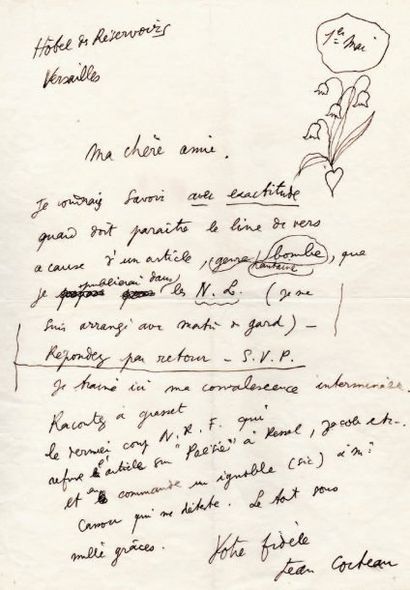 Hôtel des Réservoirs
Versailles
1er Mai
Ma chère amie.
Je voudrais savoir avec exactitude
quand doit paraître le livre de vers
a cause d'un article, (genre bombe, que
fantaisie
je publierai dans les N.L. (je me
suis arrangé avec Martin du Gard) —
Répondez par retour — S.V.P.
Je traîne ici ma convalescence interminable.
Racontez à Grasset
le dernier coup N.R.F. qui
refuse l'article sur "Poésie" à Kessel, Jacob etc..
et en commande un ignoble (sic) à M.
Cassou qui me déteste. Le tout sous
mille grâces.
Votre fidèle
Jean Cocteau